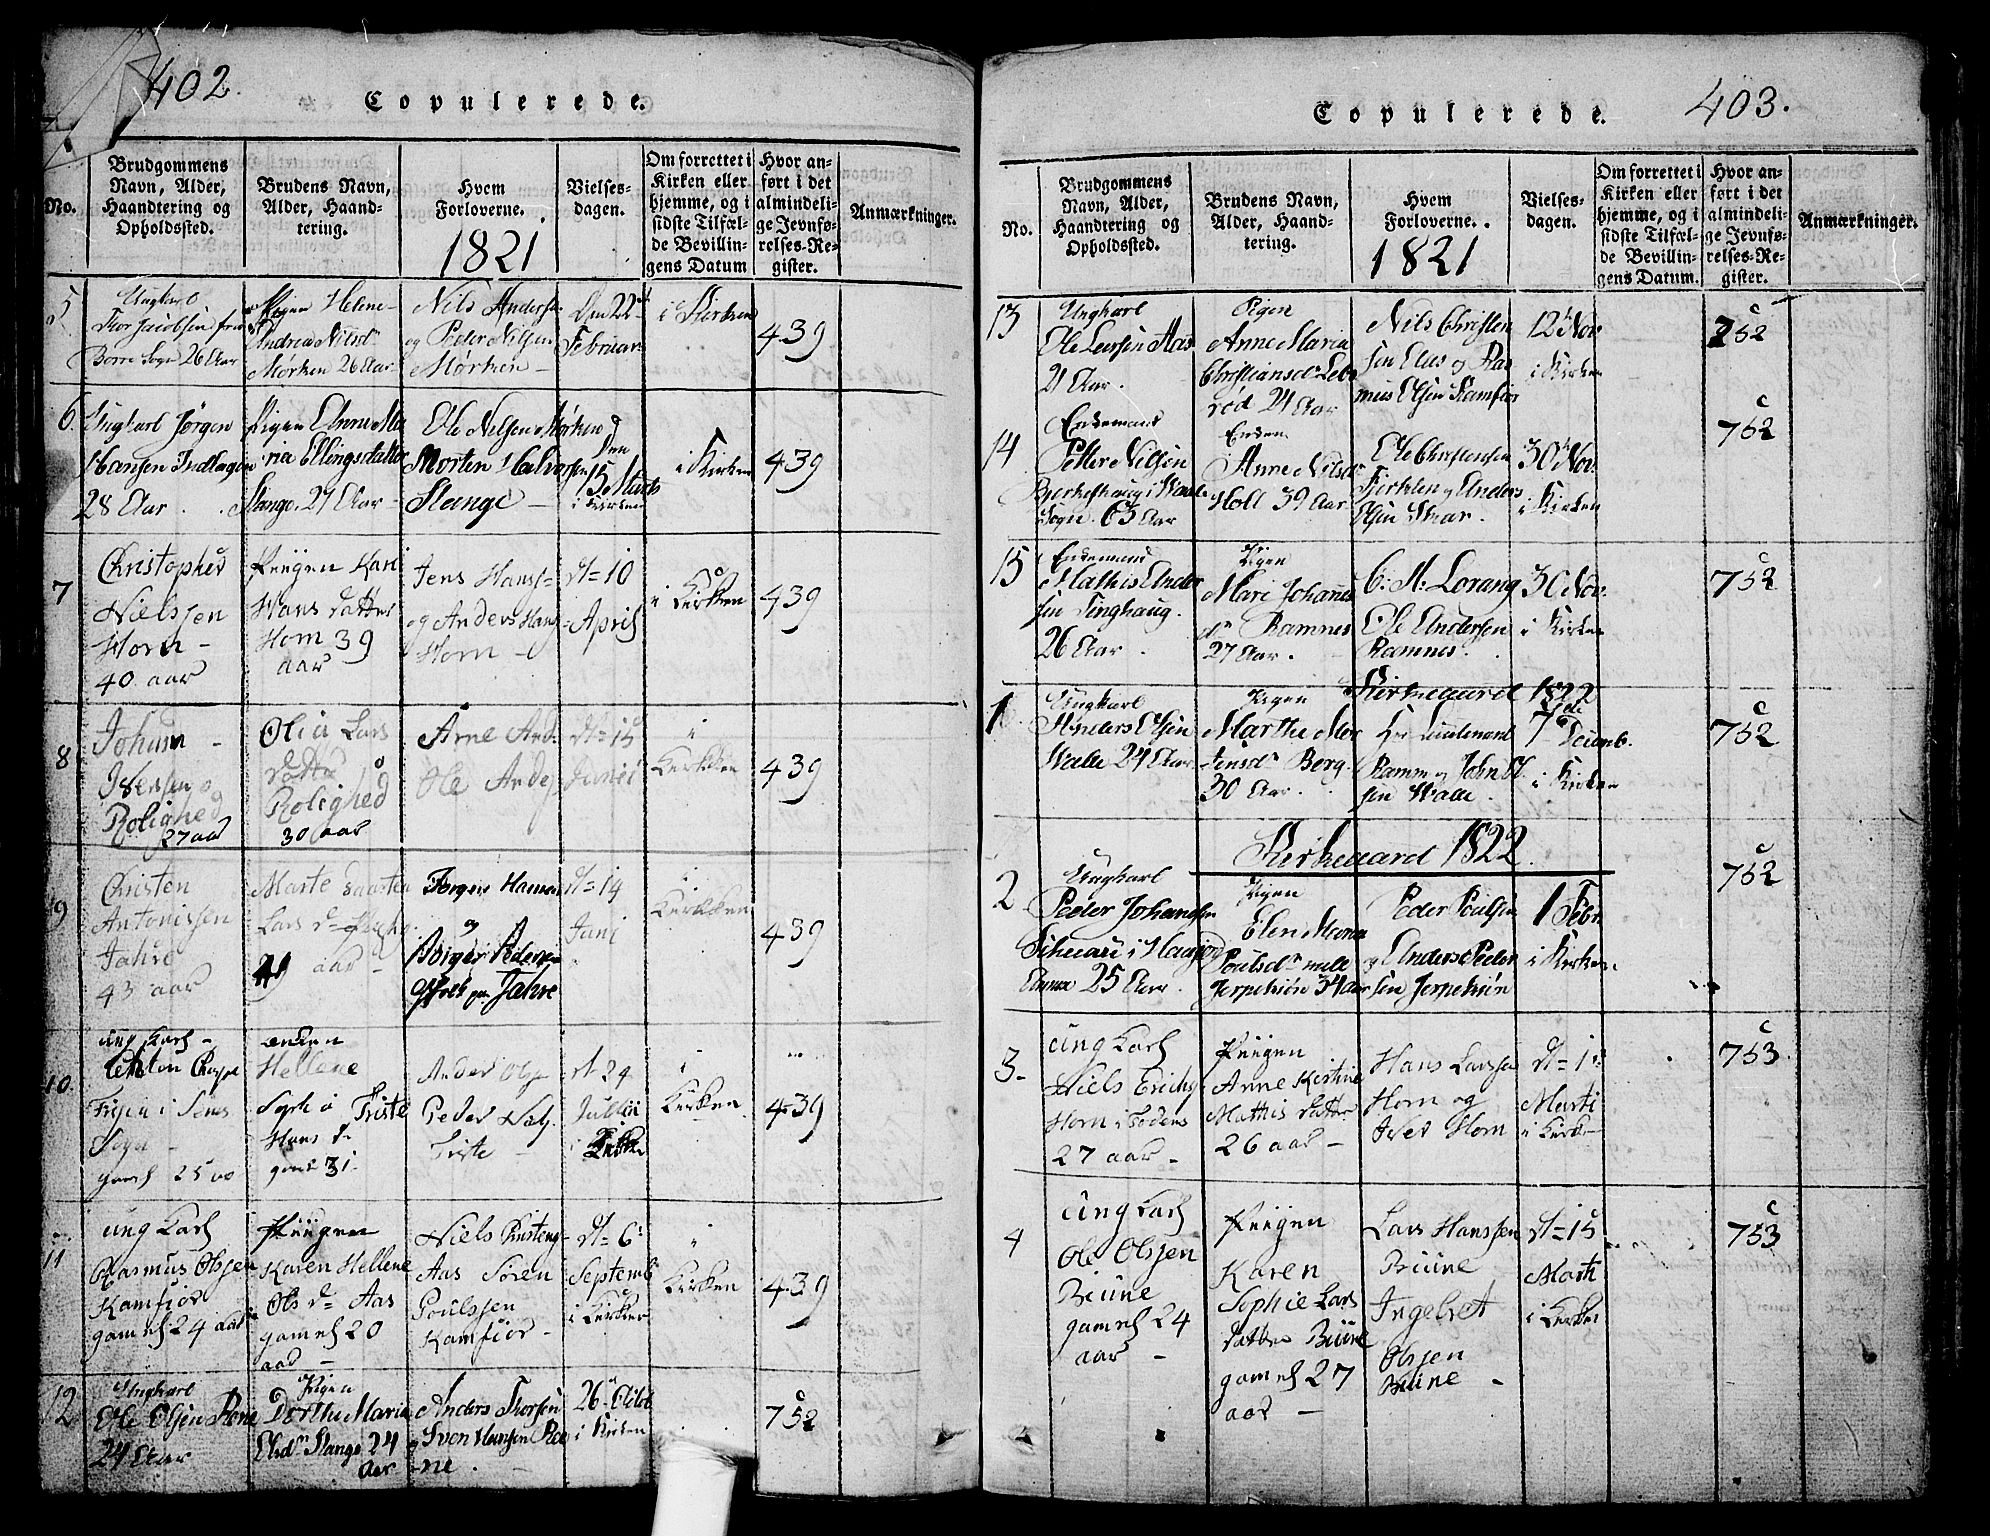 402.
Copulerede.
No.
Brudgommens
Navn, Alder,
Haandtering og
Opholdssted.
Brudens Navn,
Alder, Haand-
tering.
Hvem
Forloverne.
1821.
Vielses-
dagen.
Om forrettet i
Kirken eller
hjemme, og i
sidste Tilfæl-
de Bevillin-
gens Datum
Hvor an-
ført i det
almindeli-
ge Jevnfø-
relses-Re-
gister.
Anmærkninger.
5
Ungkarl
Thor Jacobsen fra
Borre Sogn 26 Aar
Pigen Helene
Andrea Nilsd
Mørken 26 Aar
Nils Andersen
og Peder Nilsen
Mørken
Den 22
Februar
i Kirken
439
6.
Ungkarl Jørgen
Hansen
28 Aar
Pigen Anne Ma
ria Ellingsdatter
Slange. 27 Aar
Ole Nilsen Mørken
Morten Halvorsen
Slange
Den
15 Marts
i Kirken
i Kirken
439
7
Christopher
Nielssen
Horn
40 aar
Piigen Kari
Hans datter
Horn 39
aar
Jens Hanss
og Anders Hans
Horn
dt= 10
April
i Kirken
439
8
Johan
Iversen
Rolighed
27 aar
Olia Lars
datter
Rolighed
30 aar
Arne And
Ole Anders
dt= 15
Junii
i
Kirkken
439
9
Christen
Antonissen
Jahre
43 aar
Marte
Lars d
aar
Jørgen Hansen
og
Jahre
dt= 14
Juni
i
Kirkken
439
10.
ung Karl
i Sems
Sogn
gamel 25
enken
Hellene
Sophia Friste
Hans d
gaml 31
Ander Olse
Peder
Friste
dt 24
Jullii
i Kirke
i
Kirken
439
11
ung Karl
Rasmus Olssen
Kamfiør
gamel 24 aar
Piigen
Karen Hellene
Ols d= Aas
gamel 20
aar
Niels Kristens
Aas Søren
Poulssen
Kamfior
dt= 6
Septemb
i Kirken
i
Kirken
439
12
Ungkarl
Ole Olsen Røne
24 Aar
Pigen
Dorthe Maria
Slange 24
Aar
Anders Thorsen
og Sven Hansen Rø
ne
26 Octob
i Kirken
752
403.
Copulerede.
No.
Brudgommens
Navn, Alder,
Haandtering og
Opholdssted.
Brudens Navn,
Alder, Haand-
tering.
Hvem
Forloverne.
1821
Vielses-
dagen.
Om forrettet i
Kirken eller
hjemme, og i
sidste Tilfæl-
de Bevillin-
gens Datum.
Hvor an-
ført i det
almindeli-
ge Jevnfø-
relses-Re-
gister.
Anmærkninger.
13
Ungkarl
Ole Larsen Aas
21 Aar.
Pigen
Anne Maria
Christiansd
rød 24 Aar
Nils Christen
sen Aas og Ras
mus Olsen Kamfior
12 Nov
i Kirken
752
14
Enkemand
Petter Nilsen
Bjerkeshaug i
Sogn. 63 Aar
Enken
Anne Nilsd
Holl 39 Aar.
Ole Christensen
og Anders
Olsen
30 Nov.
i Kirken
752
15
Enkemand
Mathis Ander
sen Linghaug.
26 Aar
Pigen
Mari Johannes
d Ramnes
27 Aar.
C: A: Lorang
Ole Andersen
Ramnes.
30 Nov.
i Kirken
752
1
Kirkeaaret 1822
Ungkarl
Anders Olsen
Walle 24 Aar.
Pigen
Marthe Mor
tensd Berg.
30 Aar.
Hr Lieutenant
Ramm og John Ol
sen Walle.
7de
Decemb.
i Kirken
752
Kirkeaard 1822.
2
Ungkarl
Peder Johansen
25 Aar.
Pigen
Elen Maria
Poulsd
34 Aar
Peder Poulsen
og Anders Peder
sen
1 Febr
i Kirken
752
3.
ung Karl
Niels Erichs
Horn i Bodens
27 aar
Piigen
Anne Kirstine
Mathis datter
26 aar
Hans Larssen
Horn og
Iver Horn
dt= 1
Marti
i Kirk
753
4
ung Karl
Ole Olssen
Briune
gamel 24
aar
Piigen
Karen
Sophie Lars
datter Briine
gamel 27
aar
Lars Hanssen
Briine
Ingelret
Olssen
Briine
dt= 15
Marti
i Kirken
753